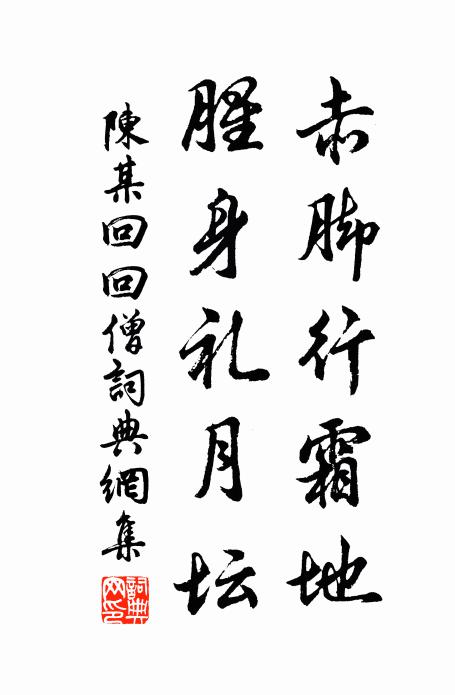 赤脚行霜地
腥身礼月坛
陳某回回僧詞典網集
詞典网印